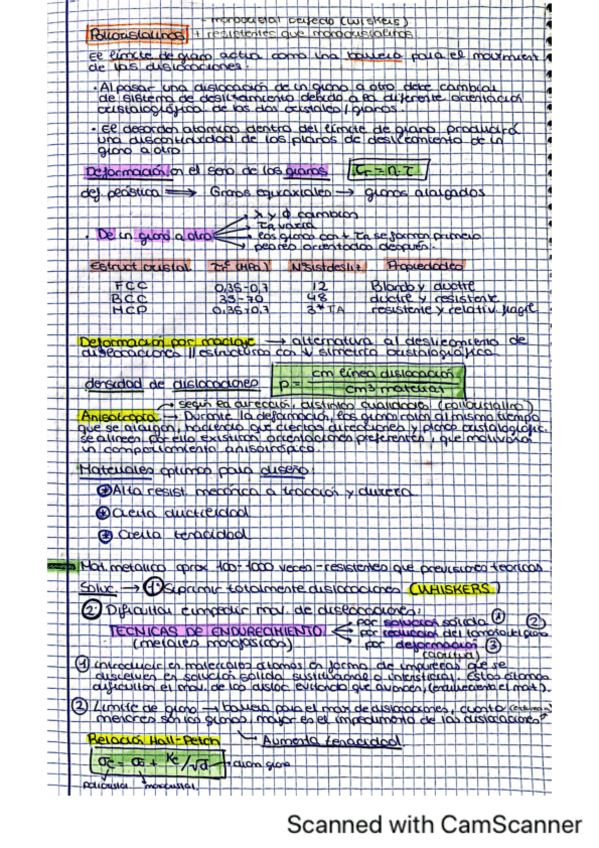 - monocristal perfecto (whiskers)
Policristalinos + resistentes que monocristalinos
El límite de grano actúa como una barrera para el movimient
de las dislocaciones.
· Al pasar una dislocación de un grano a otro debe cambiar
de sistema de deslizamiento debido a la diferente orientación
cristalográfica de los dos cristales/granos.
· El desorden atómico dentro del límite de grano producirá
una discontinuidad de los planos de deslizamiento de un
grano a otro
Deformación en el seno de los granos
def plástica ⟹ Granos equiaxiales → granos alargados
· De un grano a otro
λ y φ cambian
τa varía
los granos con + τa se forman primero
peores orientados después.
Estruct cristal (MPa) Nº sist desliz. Propiedades
FCC 0,35-0,7 12 Blando y dúctil
BCC 35-70 48 dúctil y resistente
HCP 0,35-0,7 3* TA resistente y relativ. frágil
Deformación por maclaje → alternativa al deslizamiento de
dislocaciones // estructuras con ↓ simetría cristalográfica
densidad de dislocaciones ρ = cm línea dislocación / cm³ material
→ según la dirección, distintas cualidades (policristalino)
Anisotropía → Durante la deformación, los granos rotan al mismo tiempo
que se alargan, haciendo que ciertas direcciones y planos cristalográfic.
se alineen, por ello existirán orientaciones preferentes, que motivarán
un comportamiento anisotrópico.
Materiales óptimos para diseño:
Alta resist. mecánica a tracción y dureza
Cierta ductilidad
Cierta tenacidad
Mat. metálico aprox 100-1000 veces - resistentes que previsiones teóricas
Soluc → 1º Suprimir totalmente dislocaciones (WHISKERS)
2º Dificultar e impedir mov. de dislocaciones:
TECNICAS DE ENDURECIMIENTO
(metales monofásicos)
por solución sólida ①
por reducción del tamaño del grano ②
por deformación ③
(acritud)
① introducir en materiales átomos en forma de impurezas que se
disuelven en solución sólida sustitucional o intersticial. Estos átomos
dificultan el mov. de las disloc evitando que avancen, (endureciendo el mat).
② Límite de grano → barrera para el mov. de dislocaciones, cuanto
menores son los granos, mayor es el impedimento de las dislocaciones
↳ Aumenta tenacidad.
Relación Hall-Petch
→ diám grano
policristal monocristal.
Scanned with CamScanner